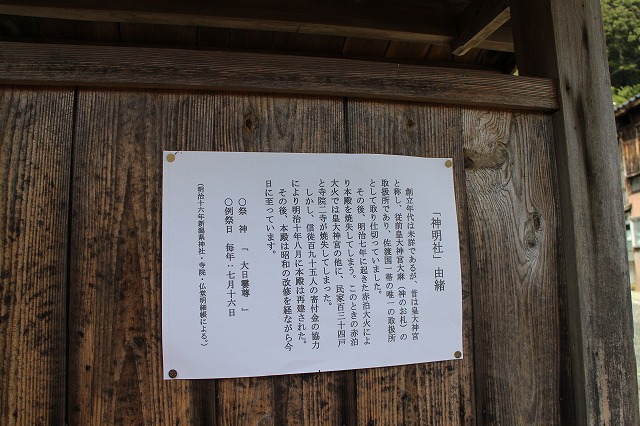 「神明社」由緒
創立年代は未詳であるが、昔は皇大神宮
と称し、従前皇大神宮大麻（神のお札）の
取扱所であり、佐渡国一番の唯一の取扱所
として取り仕切っていました。
その後、明治七年に起きた赤泊大火によ
り本殿を焼失してしまう。このときの赤泊
大火では皇大神宮の他に、民家百三十四戸
と寺院二寺が焼失してしまった。
しかし、信徒百九十五人の寄付金の協力
により明治十年八月に本殿は再建された。
その後、本殿は昭和の改修を経ながら今
日に至っています。
〇祭　神　「　大日孁尊　」
〇例祭日　毎年：七月十六日
（明治十六年新潟県神社・寺院・仏堂明細帳による。）